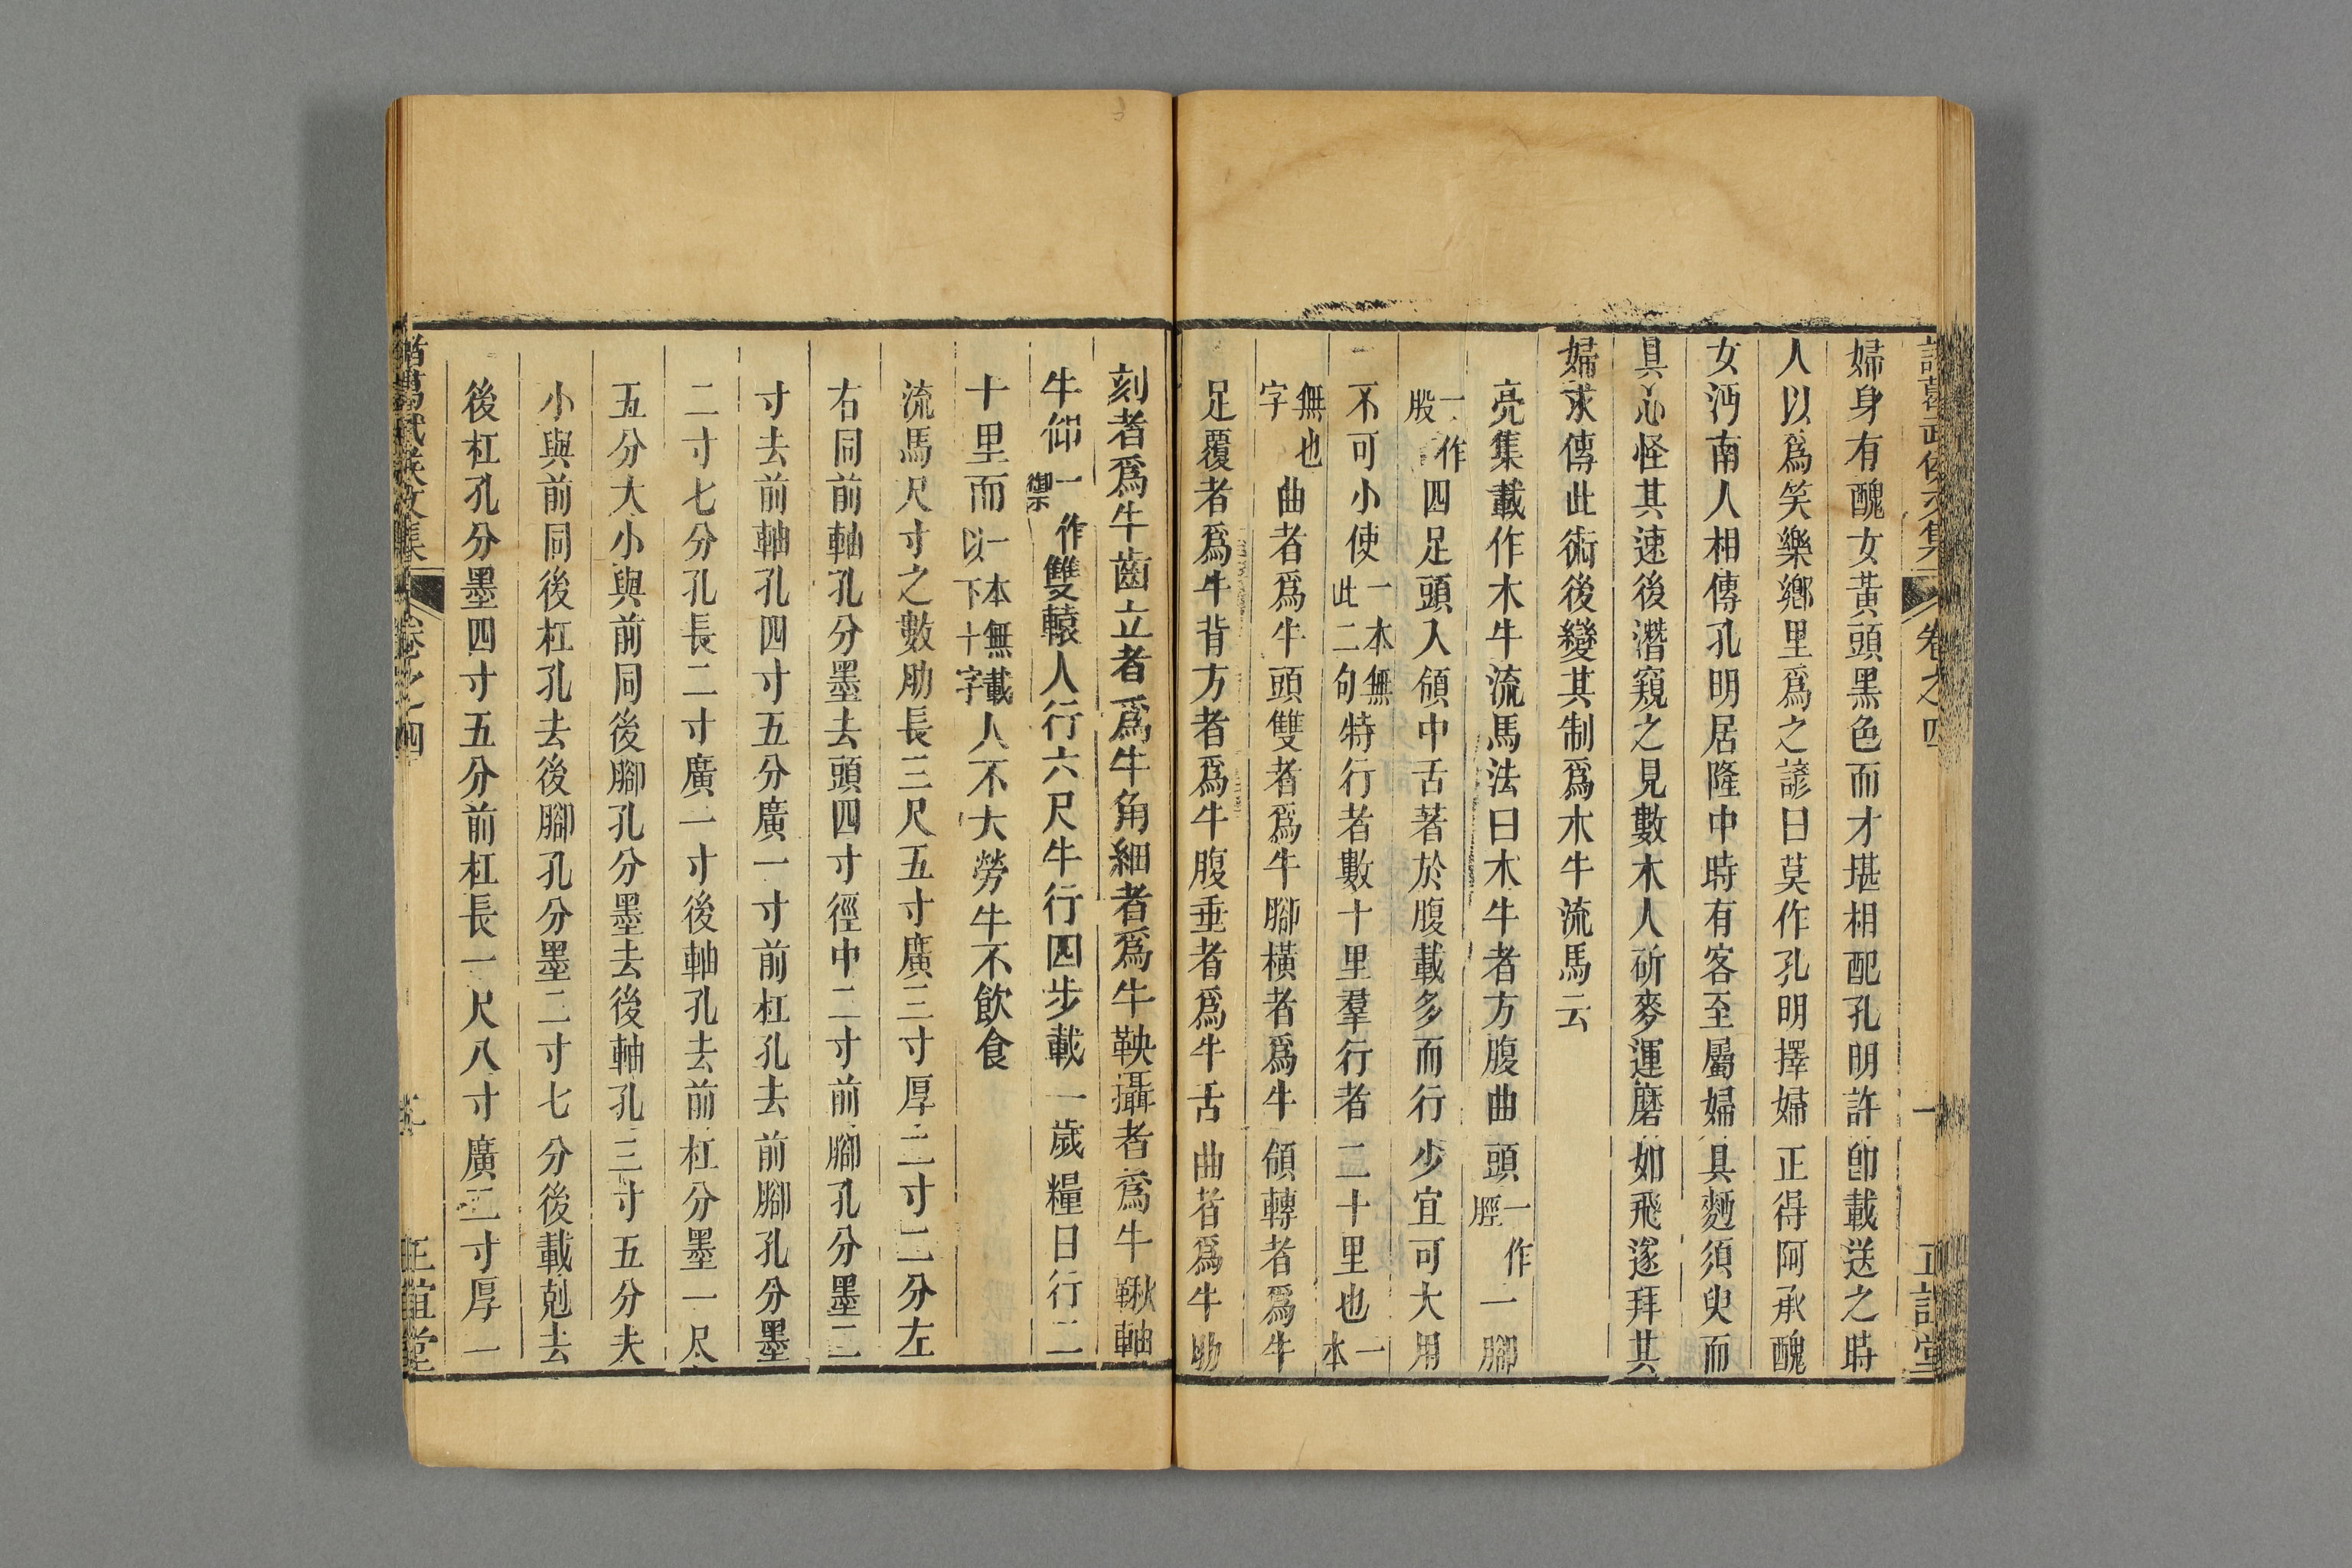 諸葛武侯文集 卷之四 正誼堂
婦身有醜女黃頭黑色而才堪相配孔明許卽載送之時
人以爲笑樂鄉里爲之諺曰莫作孔明擇婦正得阿承醜
女沔南人相傳孔明居隆中時有客至屬婦具麪須臾而
具心怪其速後潛窺之見數木人斫麥運磨如飛遂拜其
婦求傳此術後變其制爲木牛流馬云
亮集載作木牛流馬法曰木牛者方腹曲頭一作脛一腳
一作股四足頭入領中舌著於腹載多而行少宜可大用
不可小使一本無此二句特行者數十里羣行者二十里也一本
無也字曲者爲牛頭雙者爲牛腳橫者爲牛領轉者爲牛
足覆者爲牛背方者爲牛腹垂者爲牛舌曲者爲牛肋
刻者爲牛齒立者爲牛角細者爲牛鞅攝者爲牛鞦軸
牛仰一作御雙轅人行六尺牛行四步載一歲糧日行二
十里而一本無載以下十字人不大勞牛不飲食
流馬尺寸之數肋長三尺五寸廣三寸厚二寸二分左
右同前軸孔分墨去頭四寸徑中二寸前腳孔分墨二
寸去前軸孔四寸五分廣一寸前杠孔去前腳孔分墨
二寸七分孔長二寸廣一寸後軸孔去前杠分墨一尺
五分大小與前同後腳孔分墨去後軸孔三寸五分大
小與前同後杠孔去後腳孔分墨二寸七分後載剋去
後杠孔分墨四寸五分前杠長一尺八寸廣二寸厚一
諸葛武侯文集 卷之四 正誼堂